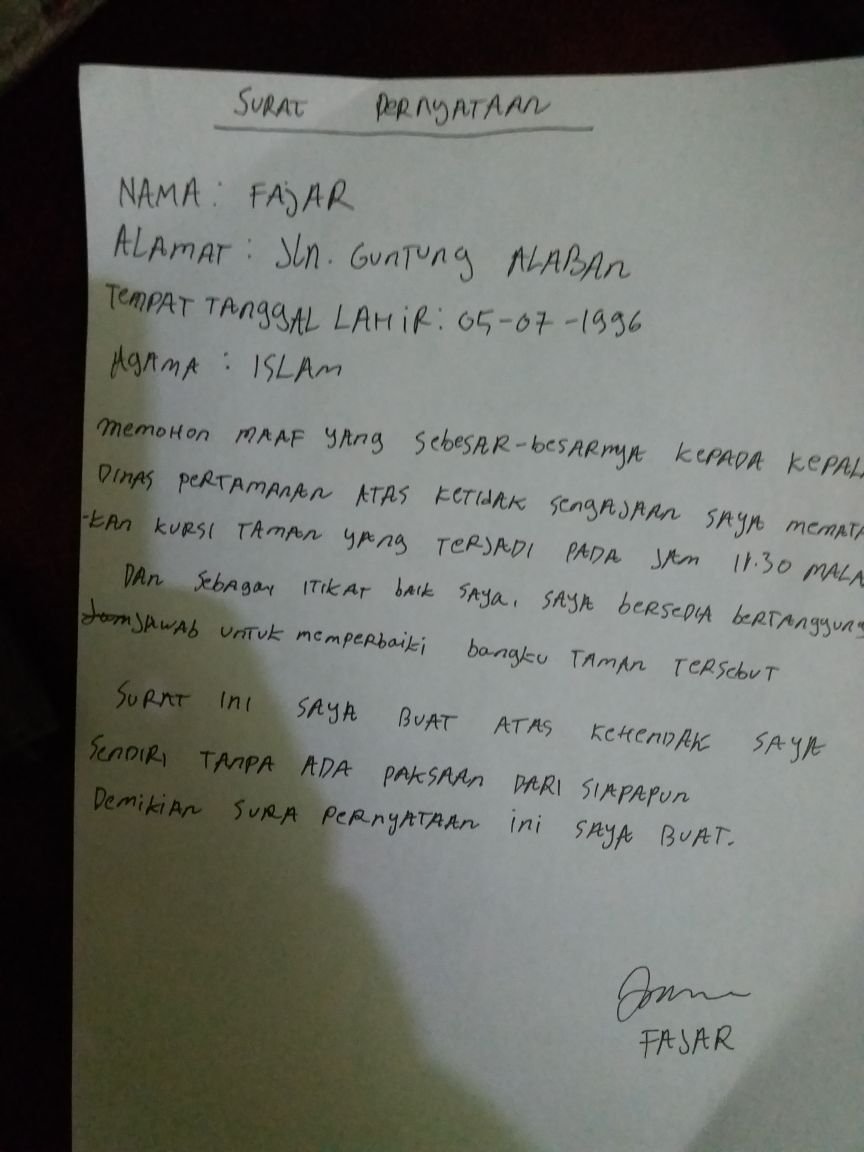 SURAT PERNYATAAN
NAMA : FAJAR
ALAMAT : JLn. GUNTUNG ALABAN
TEMPAT TANGGAL LAHIR : 05-07-1996
AGAMA : ISLAM
MEMOHON MAAF YANG SEBESAR-BESARNYA KEPADA KEPAL
DINAS PERTAMANAN ATAS KETIDAK SENGAJAAN SAYA MEMATA
-KAN KURSI TAMAN YANG TERJADI PADA JAM 11.30 MALA
DAN SEBAGAI ITIKAT BAIK SAYA, SAYA BERSEDIA BERTANGGUNG
JAWAB UNTUK MEMPERBAIKI BANGKU TAMAN TERSEBUT
SURAT INI SAYA BUAT ATAS KEHENDAK SAYA
SENDIRI TANPA ADA PAKSAAN DARI SIAPAPUN
DEMIKIAN SURA PERNYATAAN INI SAYA BUAT.
FAJAR